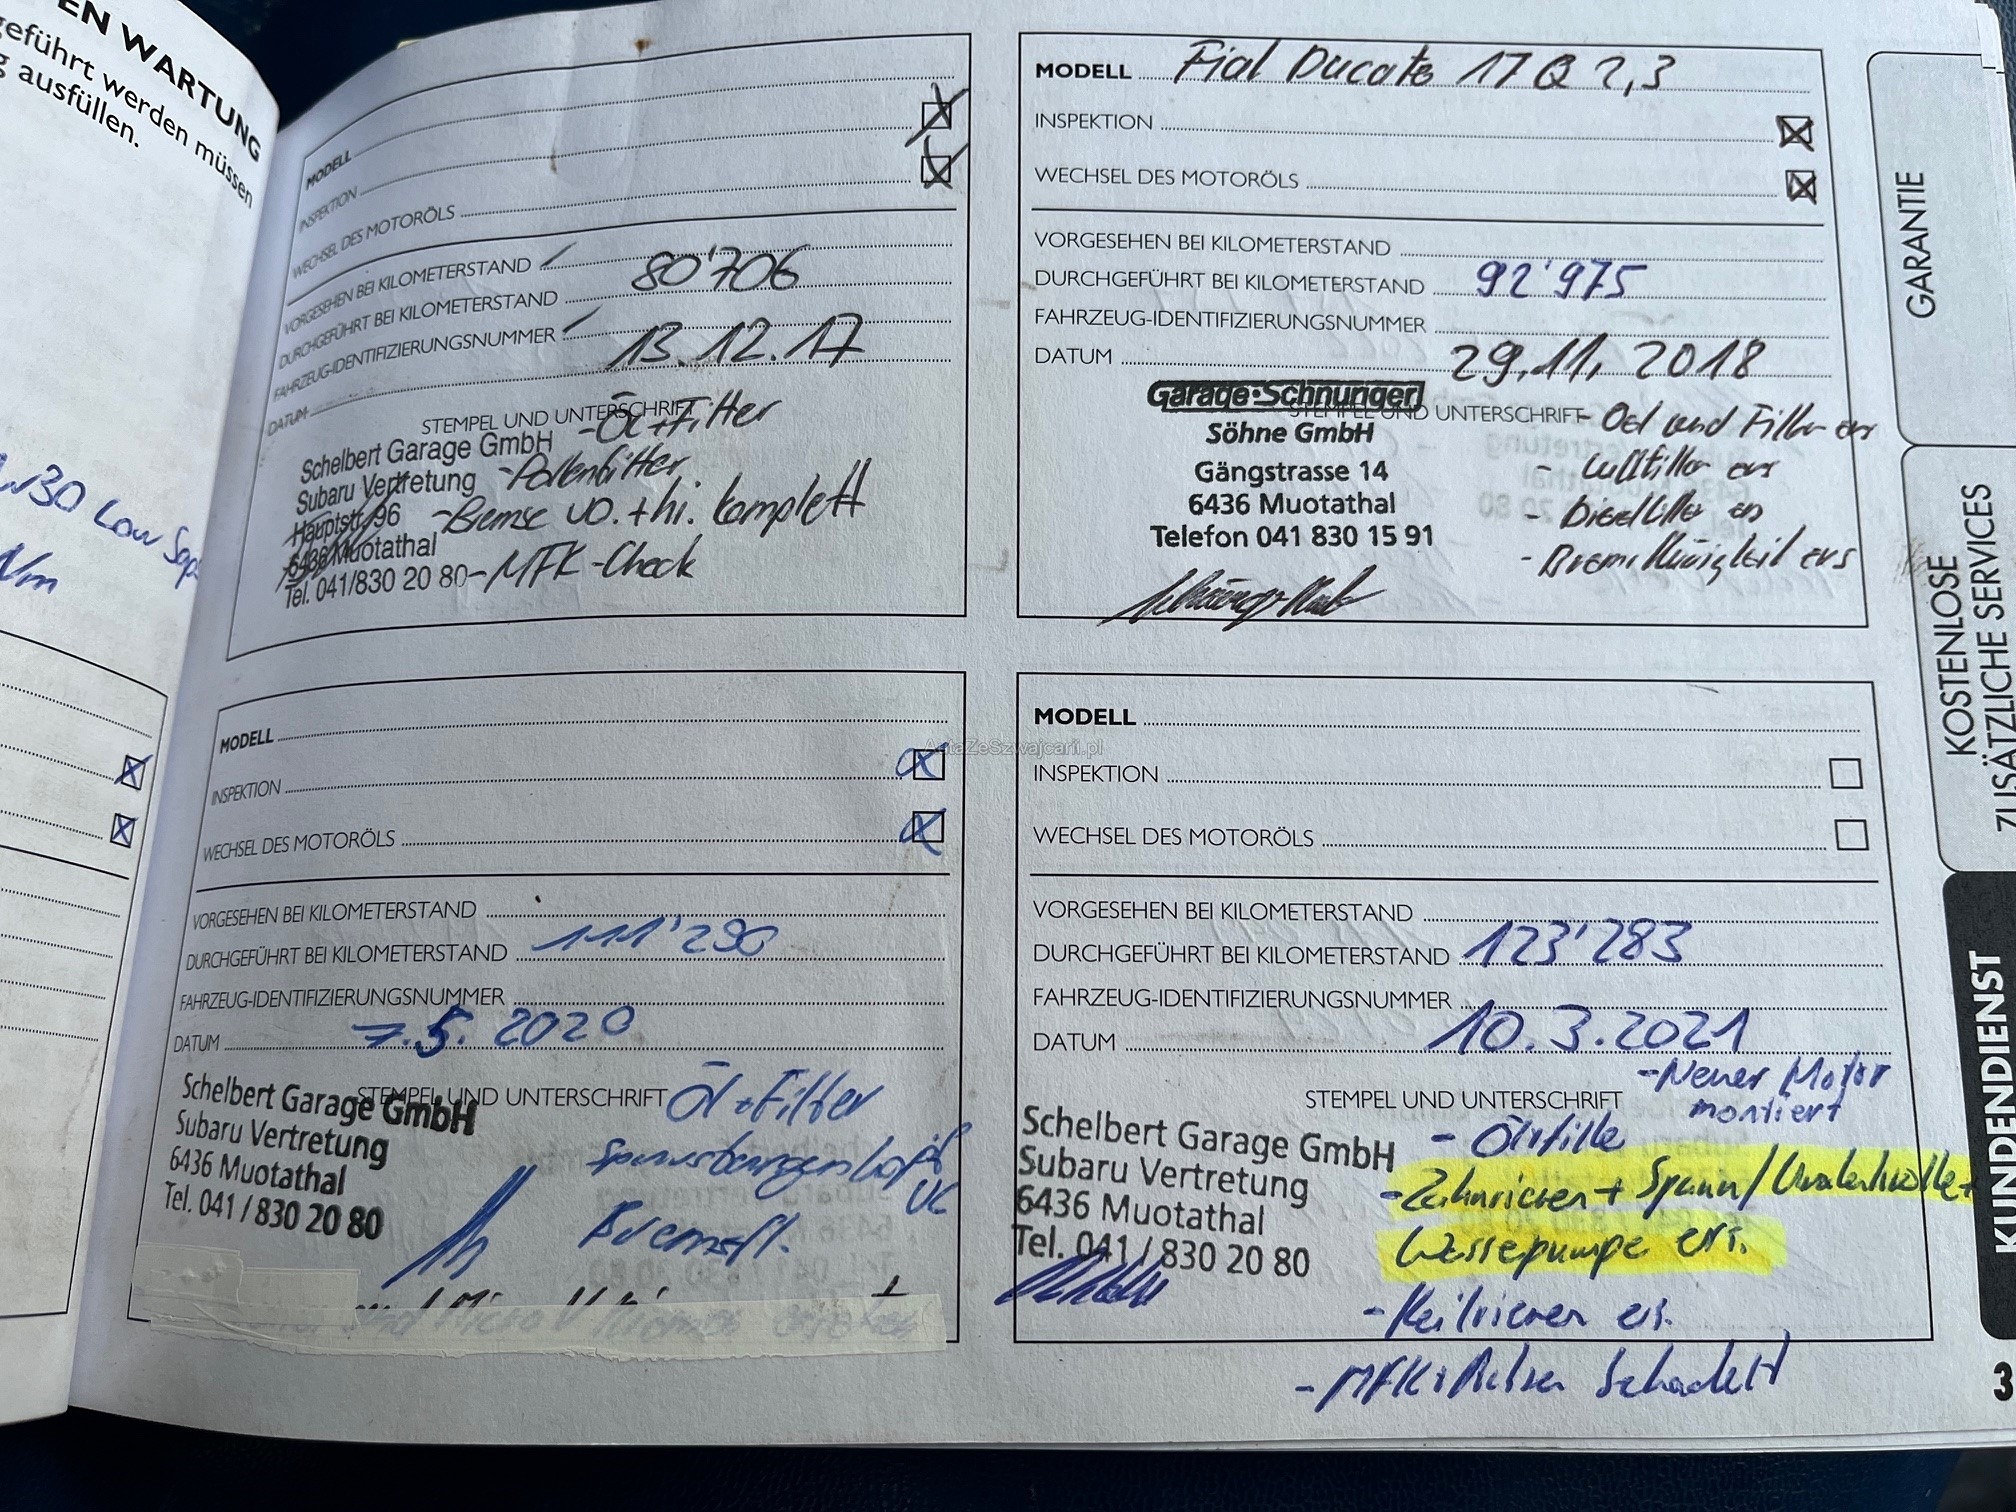 EN WARTUNG
geführt werden müssen
g ausfüllen.
W30 Low Sap
Nm
MODELL
INSPEKTION
WECHSEL DES MOTORÖLS
VORGESEHEN BEI KILOMETERSTAND
80'706
DURCHGEFÜHRT BEI KILOMETERSTAND
FAHRZEUG-IDENTIFIZIERUNGSNUMMER
13.12.17
DATUM
STEMPEL UND UNTERSCHRIFT
- Öl + Filter
Schelbert Garage GmbH
Subaru Vertretung
- Pollenfilter
Hauptstr. 96
- Bremse vo. + hi. komplett
6436 Muotathal
Tel. 041/830 20 80
- MFK - Check
MODELL Fiat Ducato 17 Q 2,3
INSPEKTION
WECHSEL DES MOTORÖLS
VORGESEHEN BEI KILOMETERSTAND
DURCHGEFÜHRT BEI KILOMETERSTAND 92'975
FAHRZEUG-IDENTIFIZIERUNGSNUMMER
DATUM 29.11.2018
STEMPEL UND UNTERSCHRIFT
Garage-Schnüriger
Söhne GmbH
Gängstrasse 14
6436 Muotathal
Telefon 041 830 15 91
- Oel und Filter ers
- Luftfilter ers
- Dieselfilter ers
- Bremsflüssigkeit ers
MODELL
INSPEKTION
WECHSEL DES MOTORÖLS
VORGESEHEN BEI KILOMETERSTAND
DURCHGEFÜHRT BEI KILOMETERSTAND 111'290
FAHRZEUG-IDENTIFIZIERUNGSNUMMER
DATUM 7.5.2020
STEMPEL UND UNTERSCHRIFT
Öl + Filter
Schelbert Garage GmbH
Subaru Vertretung
6436 Muotathal
Tel. 041 / 830 20 80
Bremsfl.
MODELL
INSPEKTION
WECHSEL DES MOTORÖLS
VORGESEHEN BEI KILOMETERSTAND
DURCHGEFÜHRT BEI KILOMETERSTAND 123'283
FAHRZEUG-IDENTIFIZIERUNGSNUMMER
DATUM 10.3.2021
STEMPEL UND UNTERSCHRIFT
- Neuer Motor
montiert
Schelbert Garage GmbH
Subaru Vertretung
6436 Muotathal
Tel. 041 / 830 20 80
- Zahnriemen + Spann/Umlenkrolle +
Wasserpumpe ers.
- Keilriemen ers.
- MFK +
AutaZeSzwajcarii.pl
GARANTIE
KOSTENLOSE
ZUSÄTZLICHE SERVICES
KUNDENDIENST
3